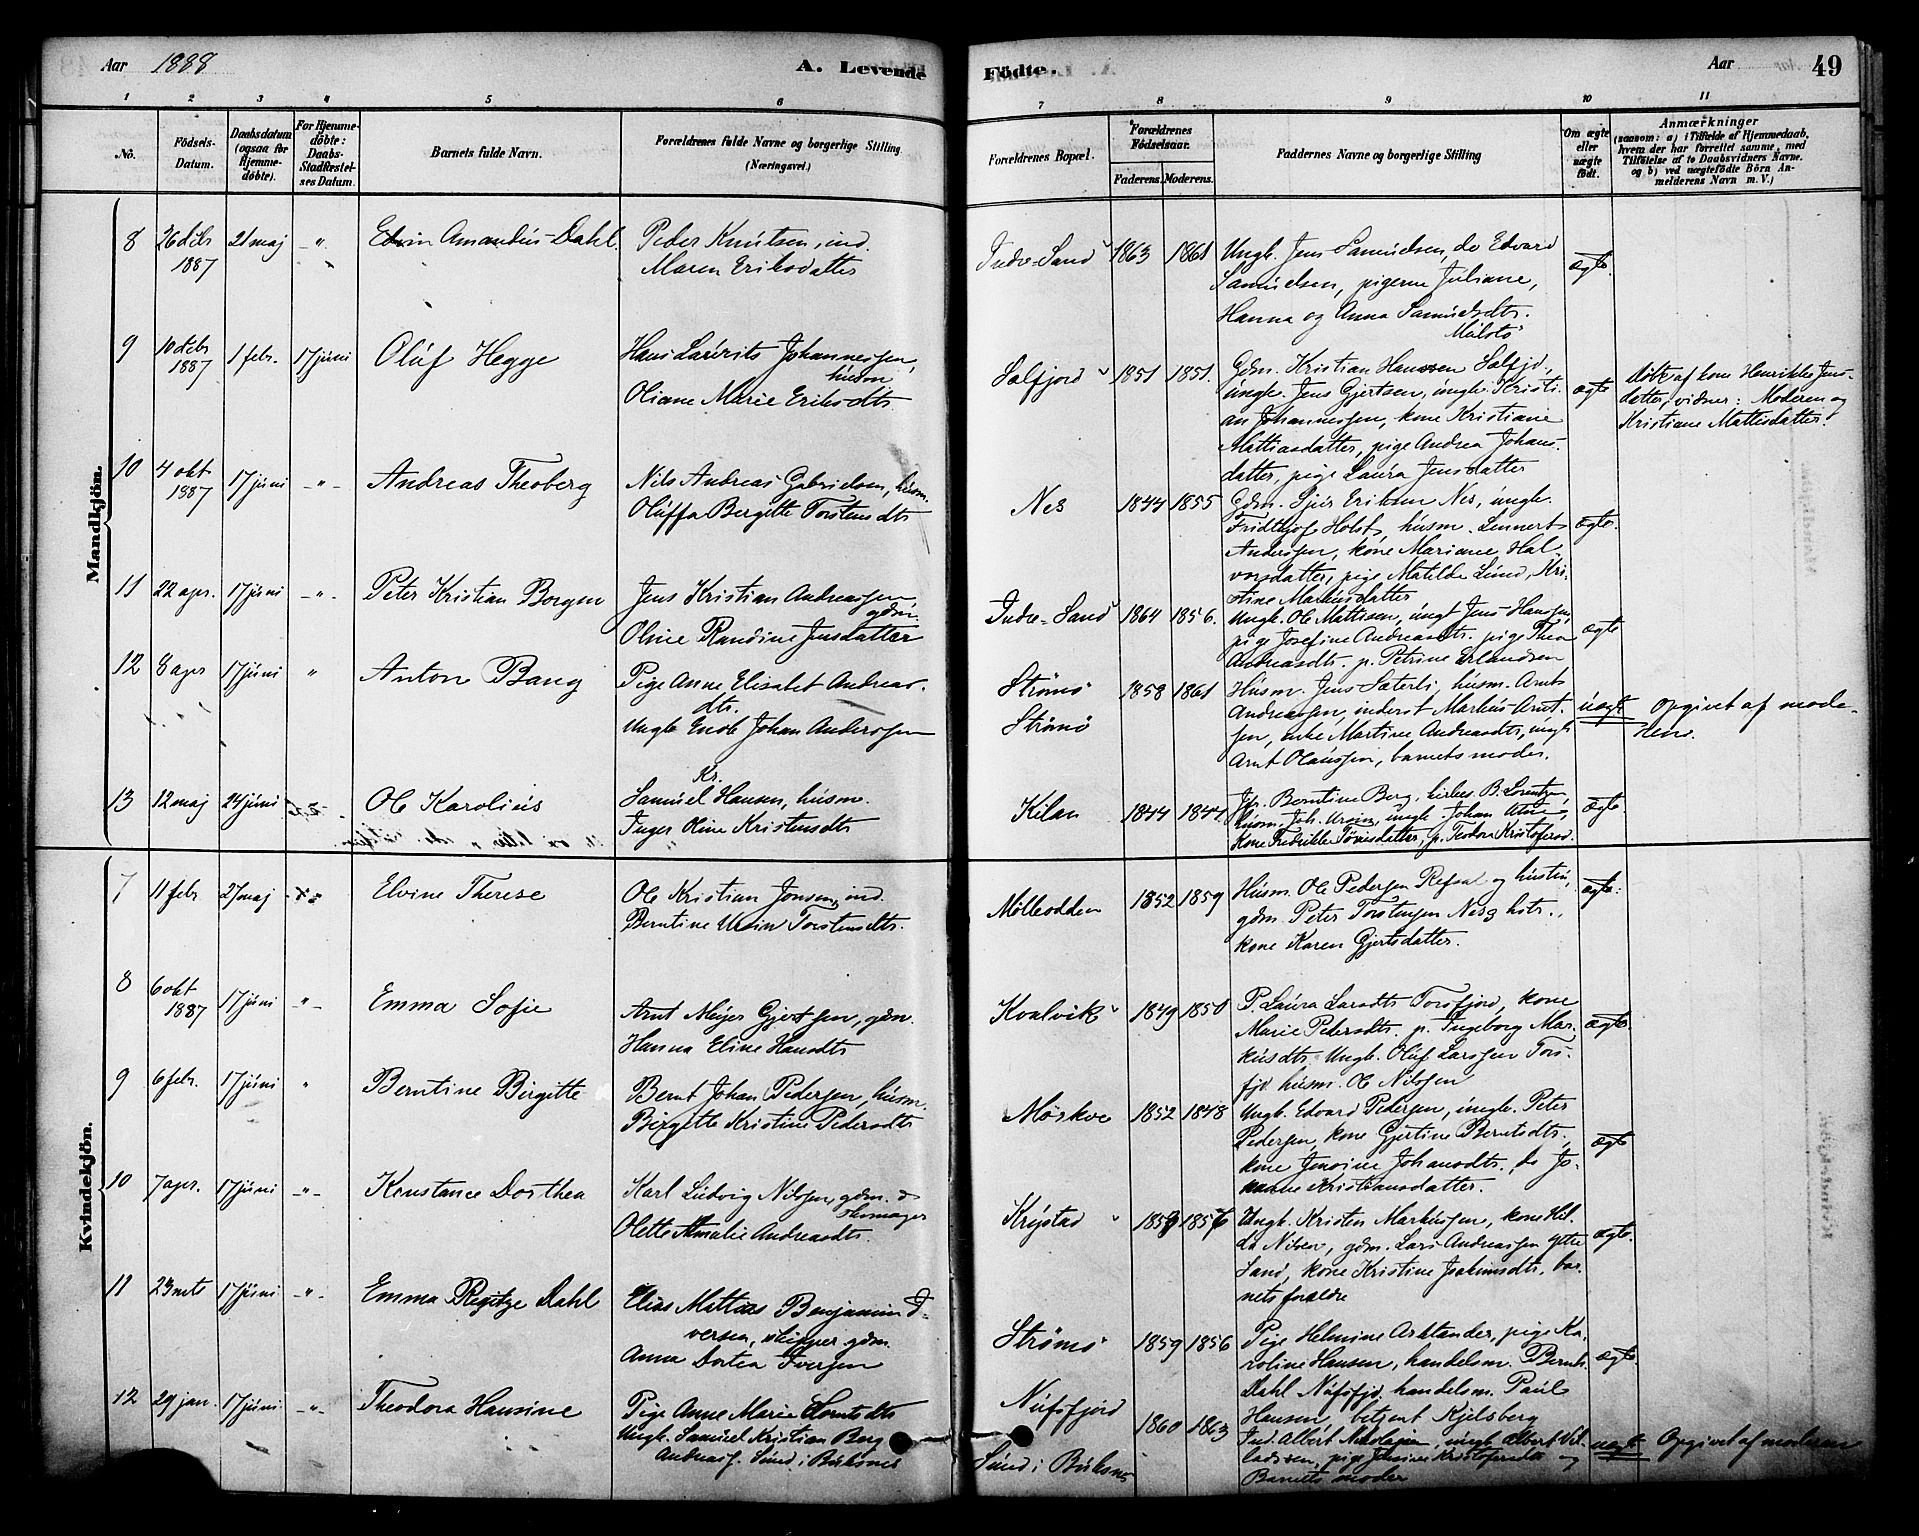 Aar 1888
A. Levende
Födte.
Aar
49
1 2 3 4 5 6 7 8 9 10 11
No.
Födsels-
Datum.
Daabsdatum
(ogsaa for
Hjemme-
döbte).
For Hjemme-
döbte:
Daabs-
Stadfæstel-
ses Datum.
Barnets fulde Navn.
Forældrenes fulde Navne og borgerlige Stilling
(Næringsvei.)
Forældrenes Bopæl.
Forældrenes
Födselsaar.
Faderens. Moderens.
Faddernes Navne og borgerlige Stilling
Om ægte
eller
uægte
födt.
Anmærkninger
(saasom: a) i Tilfælde af Hjemmedaab,
hvem der har forrettet samme, med
Tilföielse af to Daabsvidners Navne.
og b) ved uægtefödte Börn An-
melderens Navn m. V.)
Mandkjön.
8 26 debr 1887 21 maj " Edvin Amandus Dahl.
Peder Knutsen, ind.
Maren Eriksdatter
Indre-Sand 1863 1861
Ungk. Jens Samuelsen, do Edvard
Samuelsen, pigerne Juliane,
Hanna og Anna Samuelsdtr.
ægte.
9 10 debr 1887 1 febr. 17 juni Oluf Hegge
Hans Laurits Johannessen,
husm
Oliane Marie Eriksdtr.
Selfjord 1851 1851.
Gdm. Kristian Hanssen Selfjd,
ungk. Jens Gjertsen, ungk. Kristi-
an Johannessen, kone Kristiane
Mattiasdatter, pige Andrea Johans-
datter, pige Laura Jensdatter
ægte
döbt af kone Henrikke Jens-
datter, vidner: Moderen og
Kristiane Mattisdatter.
10 4 okt 1887 17 juni " Andreas Theoberg
Nils Andreas Gabrielsen, husm.
Oluffa Bergitte Torstensdtr
Nes 1844 1855
Gdm. Sjur Eriksen Nes, ungk.
Fridthjof Holst, husm. Lennert
Anderssen, kone Mariane Hal-
vorsdatter, pige Matilde Lund, Kri-
stine Markusdatter
ægte.
11 22 apr. 17 juni " Peter Kristian Borgen
Jens Kristian Andreassen
gdm.
Oline Randine Jensdatter
Indre-Sand 1864 1856.
Ungk. Ole Mattisen, ungk Jens Hanssen,
pige Josefine Andreasdtr. pige Thea
Andreasdtr. p. Petrine Erlandsen
ægte
12 8 apr 17 juni " Anton Bang
Pige Anne Elisabet Andreas-
dtr.
Ungk Enok Johan Anderssen
Strömö
Strömö
1858 1861
Husm. Jens Sæterli, husm. Arnt
Andreassen, inderst Markus Arnt-
sen, enke Martine Andreasdtr, ungk
Arnt Olaussen, barnets moder.
uægte
Opgivet af mode-
ren.
13 12 maj 24 juni Ole Karolius
Kr.
Samuel Hansen, husm.
Inger Oline Kristensdtr
Kilan 1844 1844
husm. Joh. Ursin, ungk. Johan
Kone Fredrikke Tönnesdatter, p. Teodora Kristofersd.
ægte.
Kvindekjön.
7 11 febr 27 maj Elvine Therese
Ole Kristian Jonsen, ind.
Berntine Ursin Torstensdtr.
Mölleodden 1852 1859
Husm. Ole Pedersen Refsal og hustru,
gdm. Peter Torstensen Nes og hstr.,
kone Karen Gjertsdatter.
ægte.
8 6 okt 1887 17 juni " Emma Sofie
Arnt Meyer Gjertsen, gdm.
Hanna Eline Hansdtr
Kvalvik 1849 1850
P. Laura Larsdtr Torsfjord, kone
Marie Pedersdtr. p. Ingeborg Mar-
kusdtr. Ungk. Oluf Larssen Tors-
fjd. husm. Ole Nilssen
ægte.
9 6 febr. 17 juni " Berntine Birgitte
Bernt Johan Pedersen, husm.
Birgitte Kristine Pedersdtr
Möskve 1852 1848
Ungk. Edvard Pedersen, ungk. Peter
Pedersen, kone Gjertine Berntsdtr.,
kone Jensine Johansdtr. do Jo-
hanne Kristiansdatter.
ægte
10 7 apr. 17 juni " Konstance Dorthea
Karl Ludvig Nilsen, gdm. &
skomager
Olette Amalie Andreasdtr.
Krystad 1853 1856
Ungk. Kristen Markussen, kone Hil-
da Nilsen, gdm. Lars Andreassen ytre
Sand, kone Kristine Joakimsdtr. bar-
nets forældre
ægte.
11 23 mts 17 juni " Emma Regitze Dahl
Elias Mattias Benjamin I-
versen, skipper gdm.
Anna Dortea Iversen
Strömö 1859 1856
Pige Helmine Arktander, pige Ka-
roline Hansen, handelsm. Bernh.
Dahl Nufsfjd. handelsm. Paul
Hansen, betjent Kjelsberg
ægte.
12 29 jan. 17 juni " Theodora Hansine
Pige Anne Marie
Ungk. Samuel Kristian Berg
Andreass. Sund i Buksnes
Nufsfjord
Sund i Buksnes
1860 1863
Ind. Albert Nikolajsen, ungk Albert Vil-
ladsen, pige Jensine Kristofersdtr og
Barnets moder
uægte
Opgivet af moderen